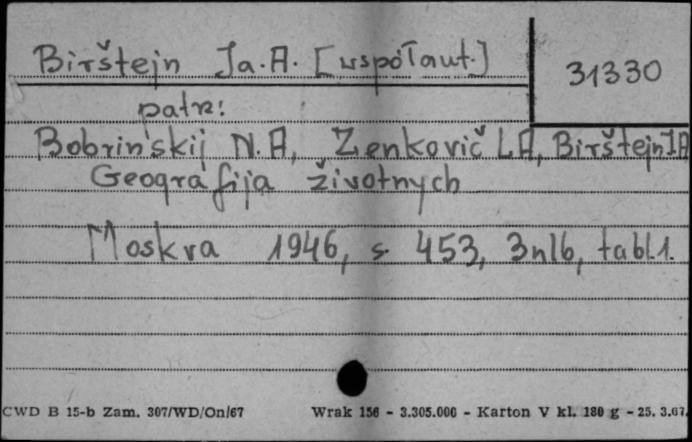 Birštejn Ja. A. [współaut.]
31330
patrz:
Bobrinskij N. A, Zenkovič L A, Birštejn J A
Geografija životnych
Moskva 1946, s. 453, 3 nlb, tabl. 1.
CWD B 15-b Zam. 307/WD/On/67 Wrak 156 - 3.305.000 - Karton V kl. 180 g - 25. 3.67.